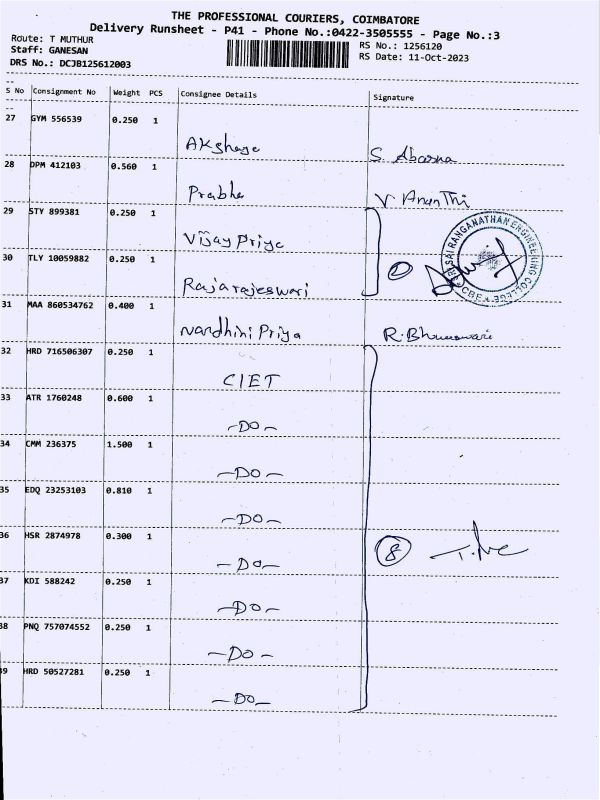 THE PROFESSIONAL COURIERS, COIMBATORE
Delivery Runsheet - P41 - Phone No.:0422-3505555 - Page No.:3
Route: T MUTHUR
Staff: GANESAN
DRS No.: DCJB125612003
RS No.: 1256120
RS Date: 11-Oct-2023
S No Consignment No Weight PCS Consignee Details Signature
27 GYM 556539 0.250 1
Akshaya S. Abarna
28 DPM 412103 0.560 1
Prabha V Ananthi
29 STY 899381 0.250 1
Vijay Priya
30 TLY 10059882 0.250 1
Rajarajeswari
2
SRI SAI RANGANATHAN ENGINEERING COLLEGE
CBE
31 MAA 860534762 0.400 1
Nandhini Priya R. Bhuvaneswari
32 HRD 716506307 0.250 1
CIET
33 ATR 1760248 0.600 1
-Do-
34 CMM 236375 1.500 1
-Do-
35 EDQ 23253103 0.810 1
-Do-
36 HSR 2874978 0.300 1
-Do-
8
37 KDI 588242 0.250 1
-Do-
38 PNQ 757074552 0.250 1
-Do-
39 HRD 50527281 0.250 1
-Do-